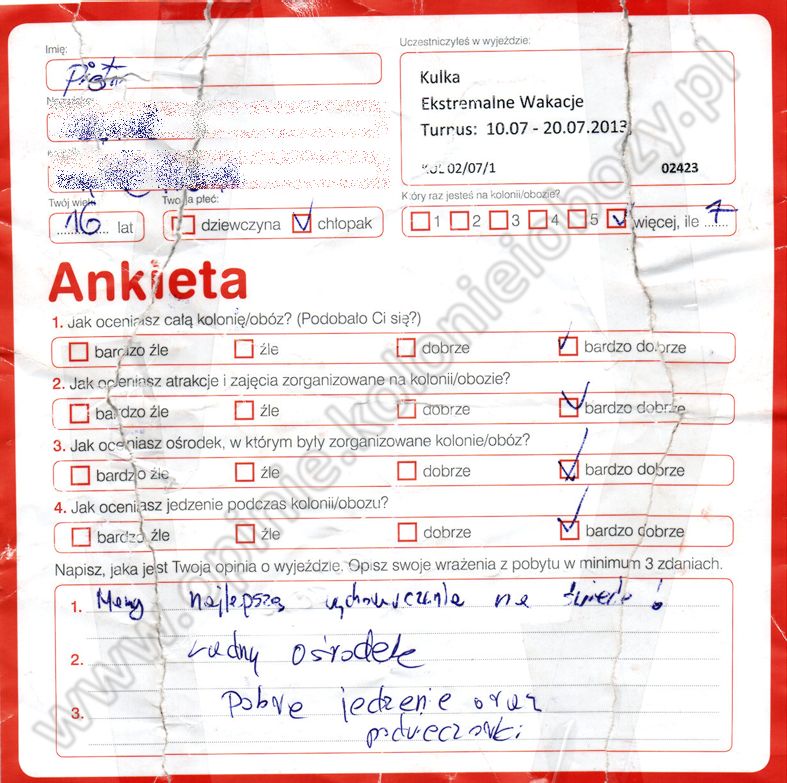 Imię:
Piotr
Uczestniczyłeś w wyjeździe:
Kulka
Ekstremalne Wakacje
Turnus: 10.07 - 20.07.2013
KOL 02/07/1 02423
Twój wiek:
16 lat
Twoja płeć:
dziewczyna chłopak
Który raz jesteś na kolonii/obozie?
1 2 3 4 5 więcej, ile 7
Ankieta
1. Jak oceniasz całą kolonię/obóz? (Podobało Ci się?)
bardzo źle źle dobrze bardzo dobrze
2. Jak oceniasz atrakcje i zajęcia zorganizowane na kolonii/obozie?
bardzo źle źle dobrze bardzo dobrze
3. Jak oceniasz ośrodek, w którym były zorganizowane kolonie/obóz?
bardzo źle źle dobrze bardzo dobrze
4. Jak oceniasz jedzenie podczas kolonii/obozu?
bardzo źle źle dobrze bardzo dobrze
Napisz, jaka jest Twoja opinia o wyjeździe. Opisz swoje wrażenia z pobytu w minimum 3 zdaniach.
1. najlepszą na !
2. Ładny ośrodek
3. Dobre jedzenie oraz
podwieczorki
www.opinie.kolonieiobozy.pl